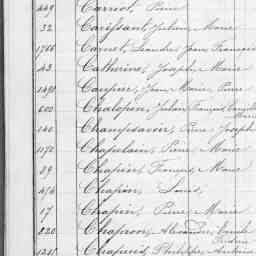 449 Carriot, Pierre
32 Carissant, Julien Marie
1766 Carnet, Leandre Jean François
43 Catherine, Joseph Marie
1400 Caupin, Jean Marie Pierre
600 Chalopin, Julien François Camille
Marie
140 Champsavoir, Pierre Joseph
1172 Chapelain, Pierre Marie
89 Chapin, François Marie
Chapin, Louis,
17 Chapin, Pierre Marie
820 Chapron, Alexandre, Camile
1245 Chapuis, Philippe Antoine